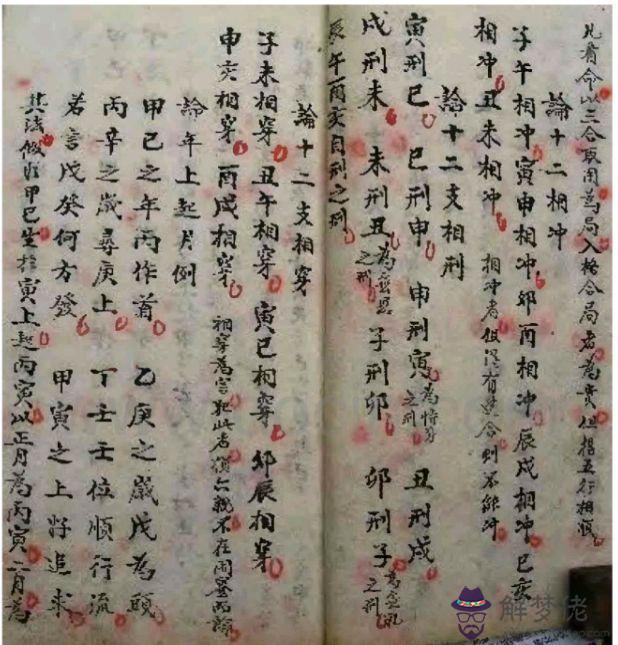 凡看命以三合取用為局入格合局者為貴但指五行相順
論十二相冲
子午相冲寅申相冲卯酉相冲辰戌相冲巳亥
相冲丑未相冲 相冲者但得有合則不能冲
論十二支相刑
寅刑巳 巳刑申 申刑寅 為恃势之刑 丑刑戌
戌刑未 未刑丑 為之刑 子刑卯 卯刑子 為無礼之刑
辰午酉亥自刑之刑
論十二支相穿
子未相穿丑午相穿寅巳相穿卯辰相穿
申亥相穿酉戌相穿 相穿為害犯此者六親不在
論年上起月例
甲己之年丙作首 乙庚之歲戊為頭
丙辛之歲尋庚上 丁壬壬位順行流
若言戊癸何方發 甲寅之上好追求
其法假如甲己生於寅上起丙寅以正月為丙寅二月為
解梦佬